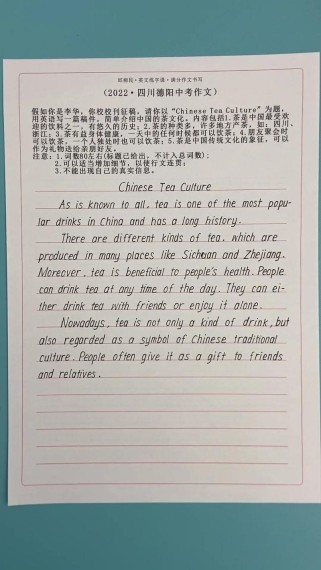 ·英文练字课·满分作文书写
(2022·四川德阳中考作文)
假如你是李华，你校校刊征稿，请你以“Chinese Tea Culture”为题，
用英语写一篇稿件，简单介绍中国的茶文化。内容包括1.茶是中国最受欢
迎的饮料之一，有悠久的历史；2.茶的种类多，许多地方产茶，如：四川、
浙江；3.茶有益身体健康，一天中的任何时候都可以饮茶；4.朋友聚会时
可以饮茶，一个人独处时也可以饮茶；5.茶是中国传统文化的象征，可以
作为礼物送给亲朋好友。
注意：1.词数80左右(标题已给出，不计入总词数)；
2.可以适当增加细节，以使行文连贯；
3.不能出现自己的真实信息。
Chinese Tea Culture
As is known to all, tea is one of the most popu-
lar drinks in China and has a long history.
There are different kinds of tea, which are
produced in many places like Sichuan and Zhejiang.
Moreover, tea is beneficial to people's health. People
can drink tea at any time of the day. They can ei-
ther drink tea with friends or enjoy it alone.
Nowadays, tea is not only a kind of drink, but
also regarded as a symbol of Chinese traditional
culture. People often give it as a gift to friends
and relatives.